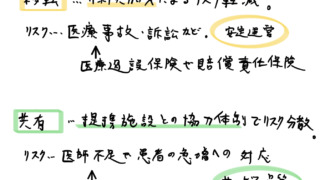 移転 … 保険加入によるリスク軽減。
リスク… 医療事故・訴訟など。 安定運営
↑
医療過誤保険や賠償責任保険
共有 … 提携施設との協力体制でリスク分散。
リスク… 医師不足や患者の急増への対応
↑